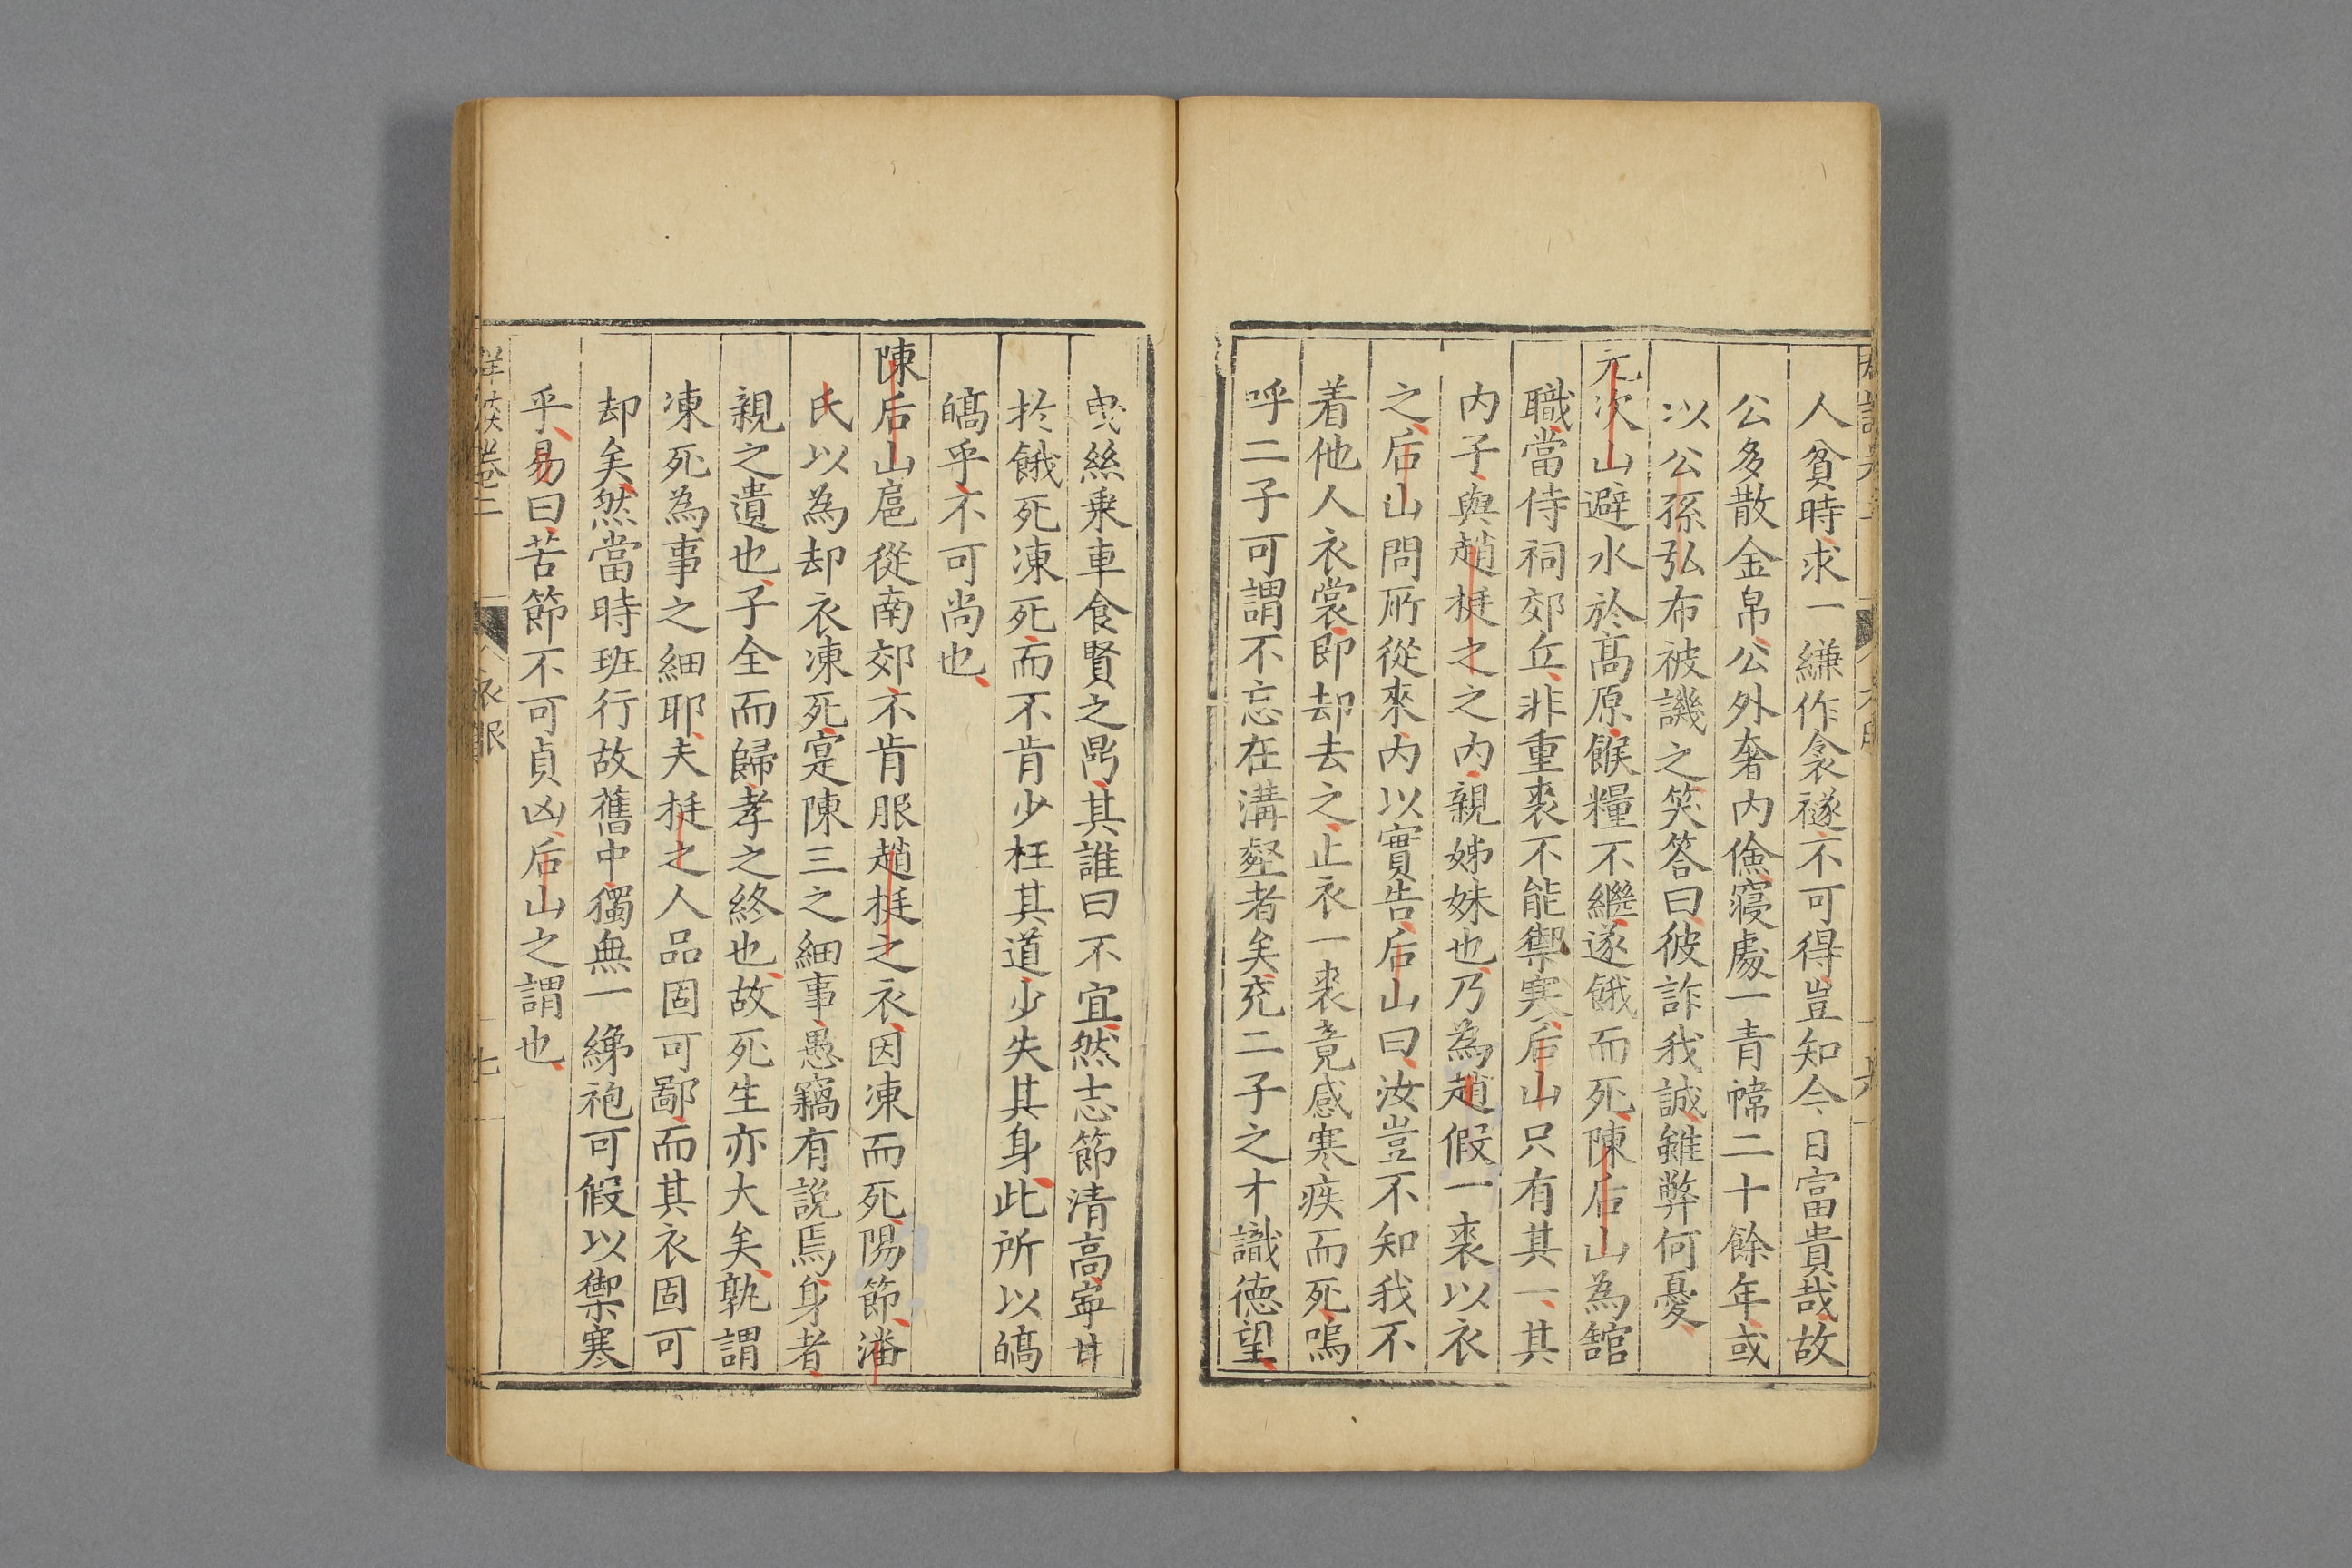 人貧時求一縑作衾襚不可得豈知今日富貴哉故
公多散金帛公外奢内儉寢處一青幃二十餘年或
以公孫弘布被譏之笑答曰彼詐我誠雖弊何憂
元次山避水於高原餱糧不繼遂餓而死陳后山為舘
職當侍祠郊丘非重裘不能禦寒后山只有其一其
内子與趙梃之之内親姊妹也乃為趙假一裘以衣
之后山問所從來内以實告后山曰汝豈不知我不
着他人衣裳即却去之止衣一裘竟感寒疾而死嗚
呼二子可謂不忘在溝壑者矣充二子之才識德望
曳絲乗車食賢之鼎其誰曰不宜然志節清高寧甘
扵餓死凍死而不肯少枉其道少失其身此所以皜
皜乎不可尚也
陳后山扈從南郊不肯服趙梃之衣因凍而死陽節潘
氏以為却衣凍死寔陳三之細事愚竊有説焉身者
親之遺也子全而歸孝之終也故死生亦大矣孰謂
凍死為事之細耶夫梃之人品固可鄙而其衣固可
却矣然當時班行故舊中獨無一綈袍可假以禦寒
乎易曰苦節不可貞凶后山之謂也
卷二
衣服
七